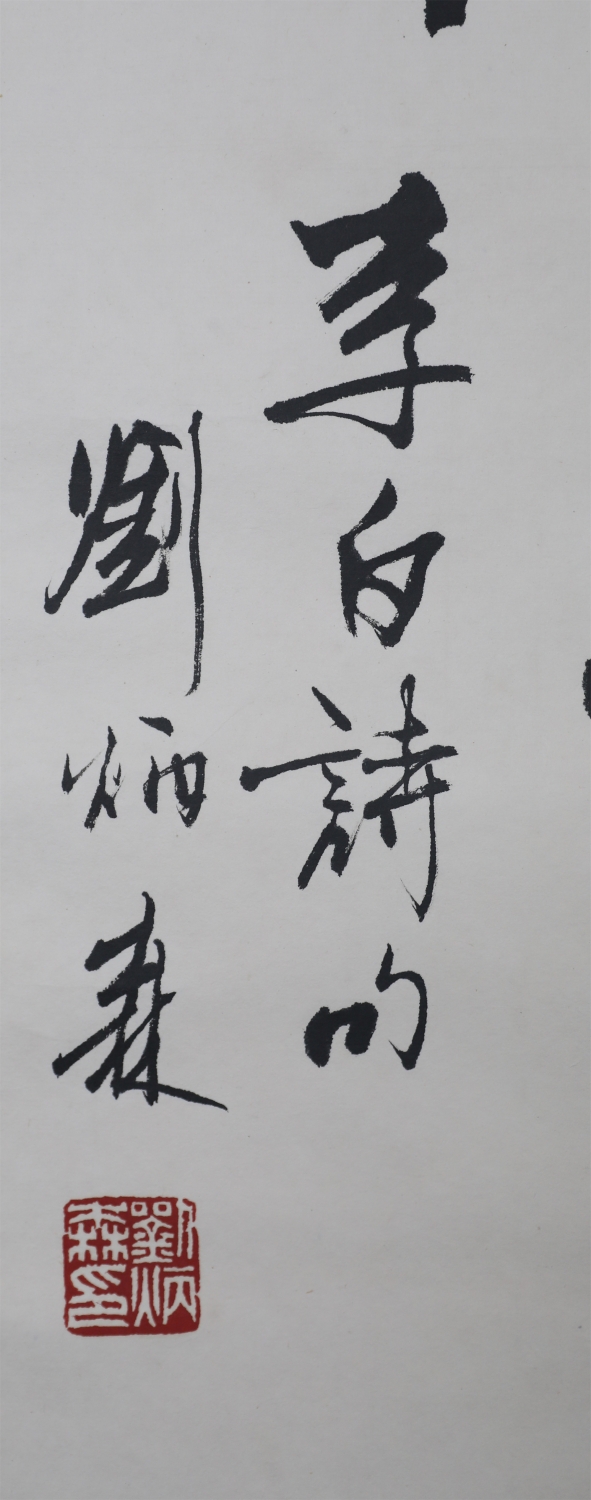 李白詩句
劉炳森
劉炳
森印